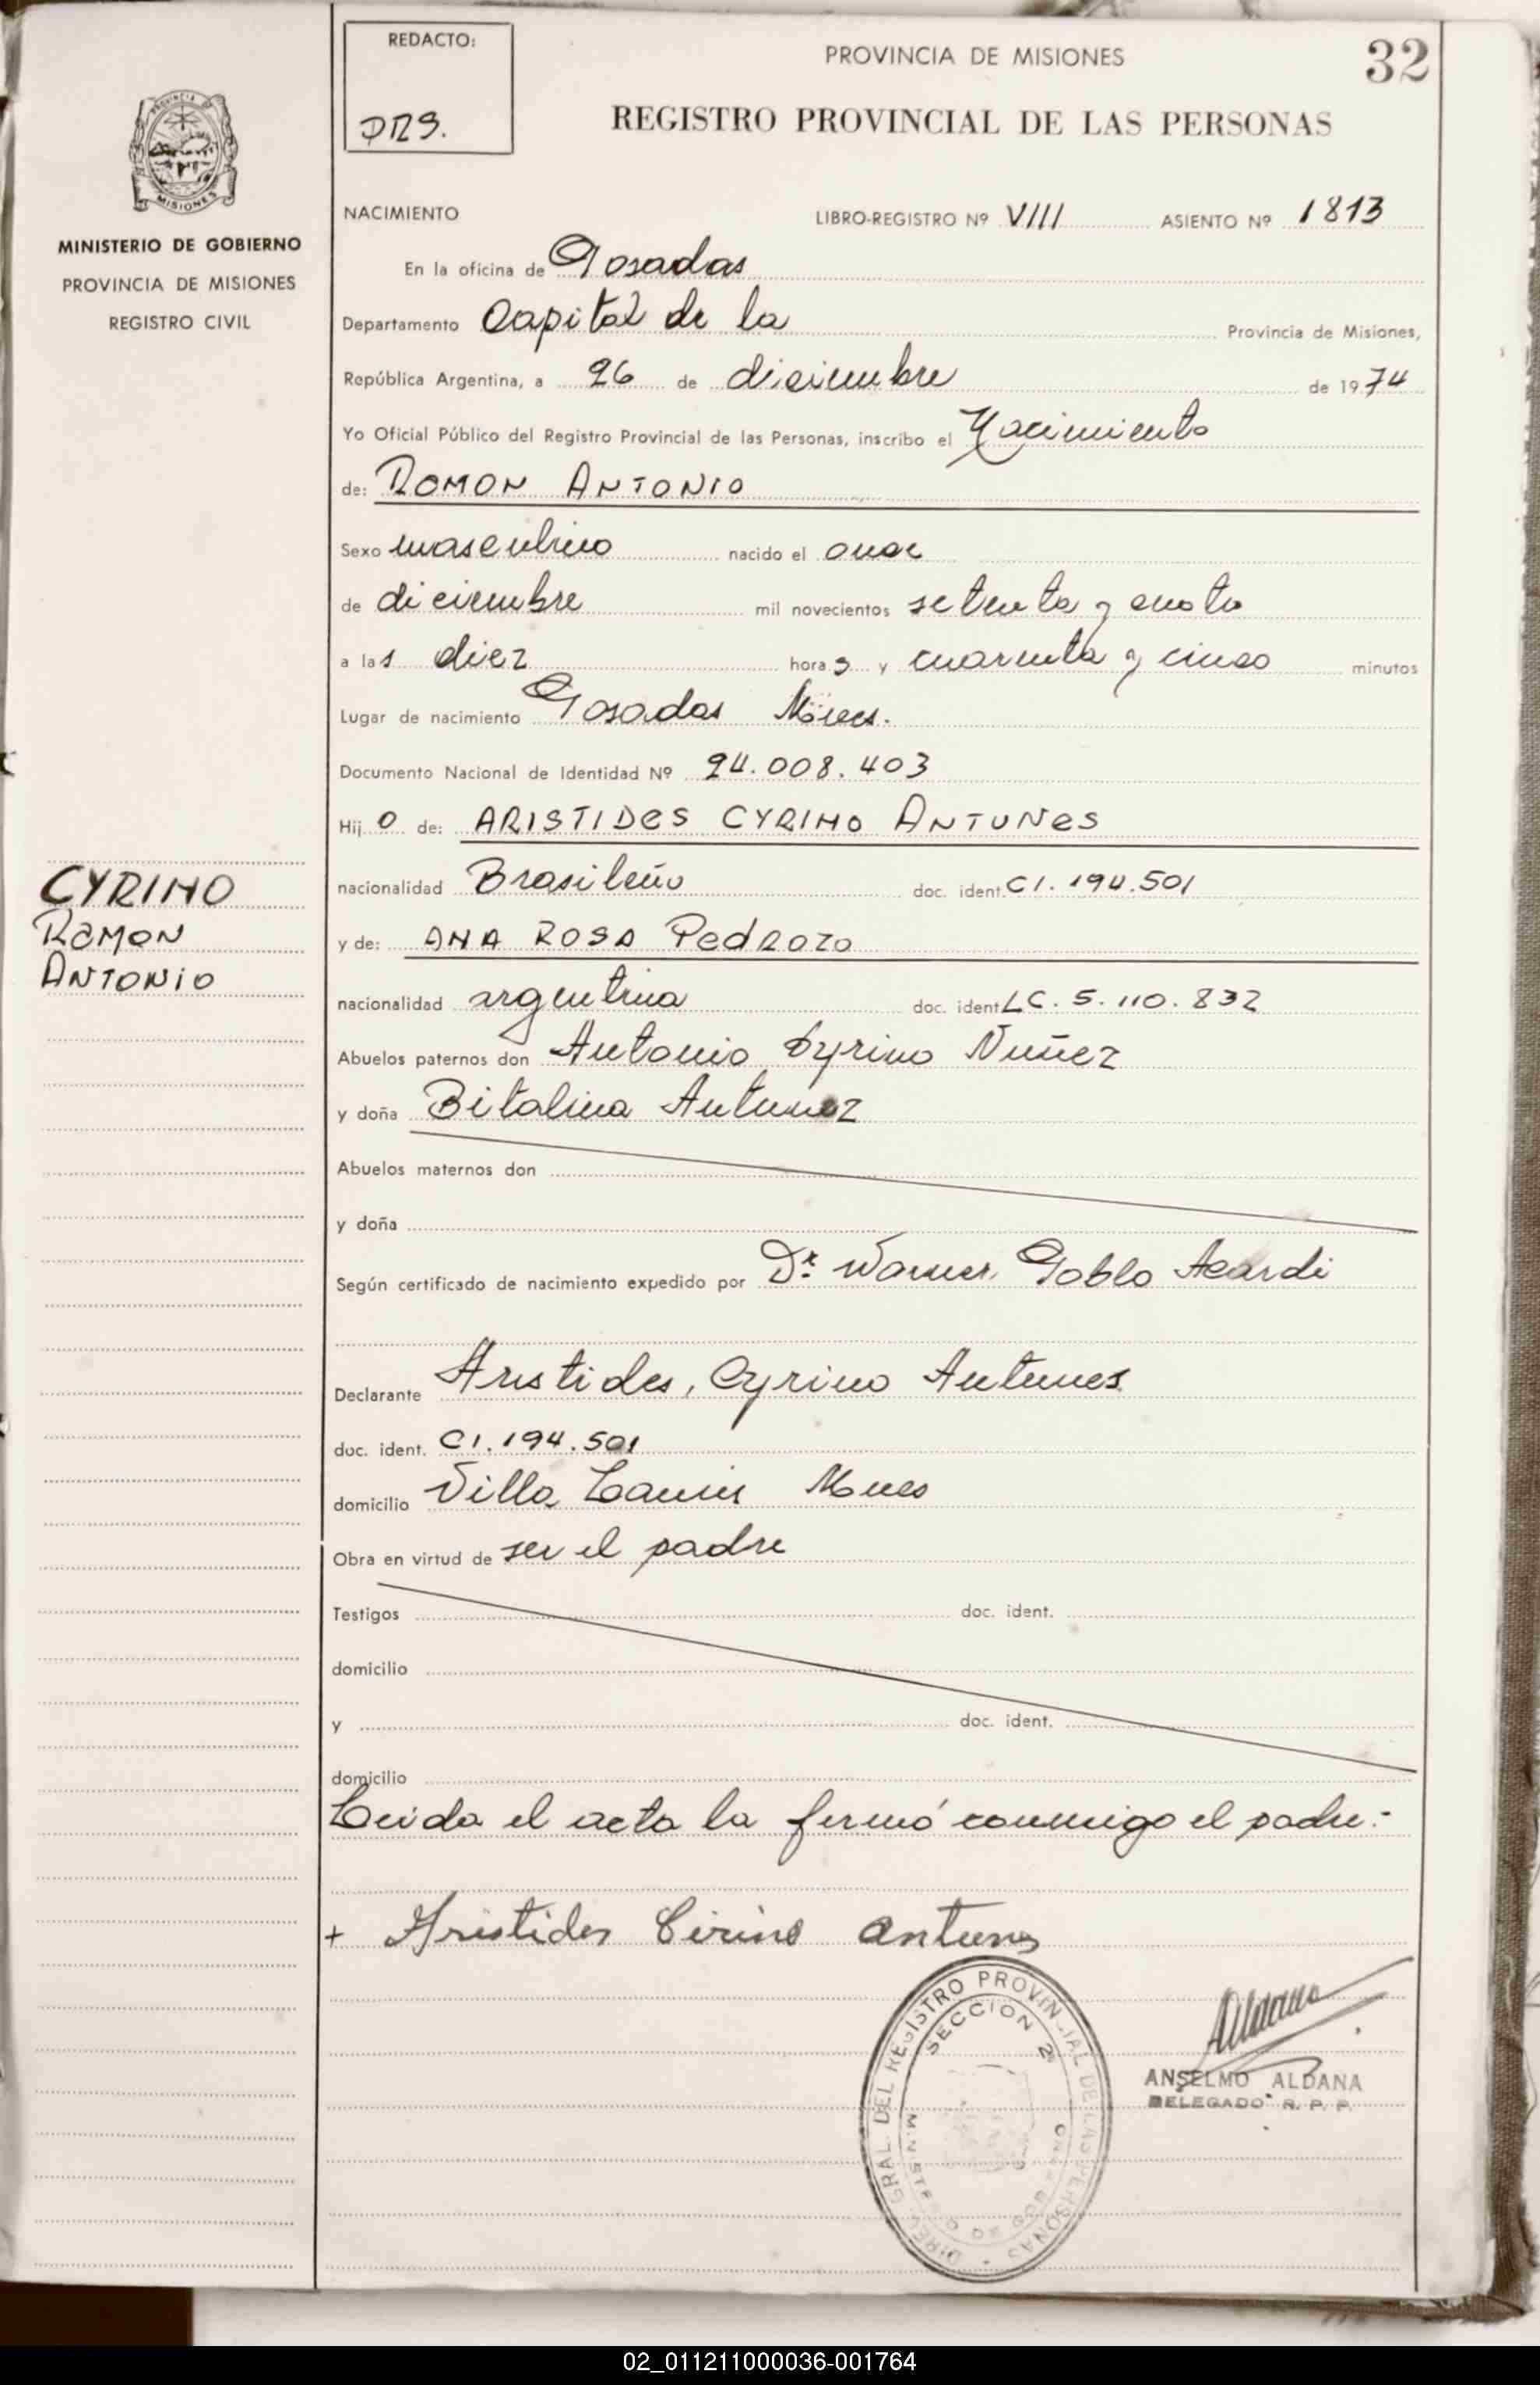 REDACTO:
PROVINCIA DE MISIONES
32
REGISTRO PROVINCIAL DE LAS PERSONAS
MISIONES
MINISTERIO DE GOBIERNO
PROVINCIA DE MISIONES
REGISTRO CIVIL
NACIMIENTO LIBRO-REGISTRO Nº VIII ASIENTO Nº 1813
En la oficina de Posadas
Departamento Capital de la Provincia de Misiones,
República Argentina, a 26 de diciembre de 1974
Yo Oficial Público del Registro Provincial de las Personas, inscribo el Nacimiento
de: RAMON ANTONIO
Sexo masculino nacido el once
de diciembre mil novecientos setenta y cuatro
a las diez horas y cuarenta y cinco minutos
Lugar de nacimiento Posadas Mnes.
Documento Nacional de Identidad Nº 24.008.403
Hijo de: ARISTIDES CYRINO ANTUNES
CYRINO
RAMON
ANTONIO
nacionalidad Brasileño doc. ident. CI. 194.501
y de: ANA ROSA PEDROZO
nacionalidad argentina doc. ident LC. 5.110.832
Abuelos paternos don Antonio Cyrino Nuñez
y doña Bitalina Antunez
Abuelos maternos don
y doña
Según certificado de nacimiento expedido por Dr. Pablo
Declarante Aristides, Cyrino Antunes
doc. ident. CI. 194.501
domicilio Villa Mnes
Obra en virtud de ser el padre
Testigos doc. ident.
domicilio
y doc. ident.
domicilio
Leida el acta la firmó conmigo el padre.-
+ Aristides Cirino Antunes
DIREC. GRAL. DEL REGISTRO PROVINCIAL DE LAS PERSONAS
SECCION 2ª
ANSELMO ALDANA
DELEGADO R. P. P.
02_011211000036-001764